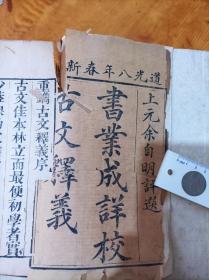 道光八年春新
上元余自明評選
書業成詳校
古文釋義
重鐫古文釋義序
古文佳本林立而最便初學者實